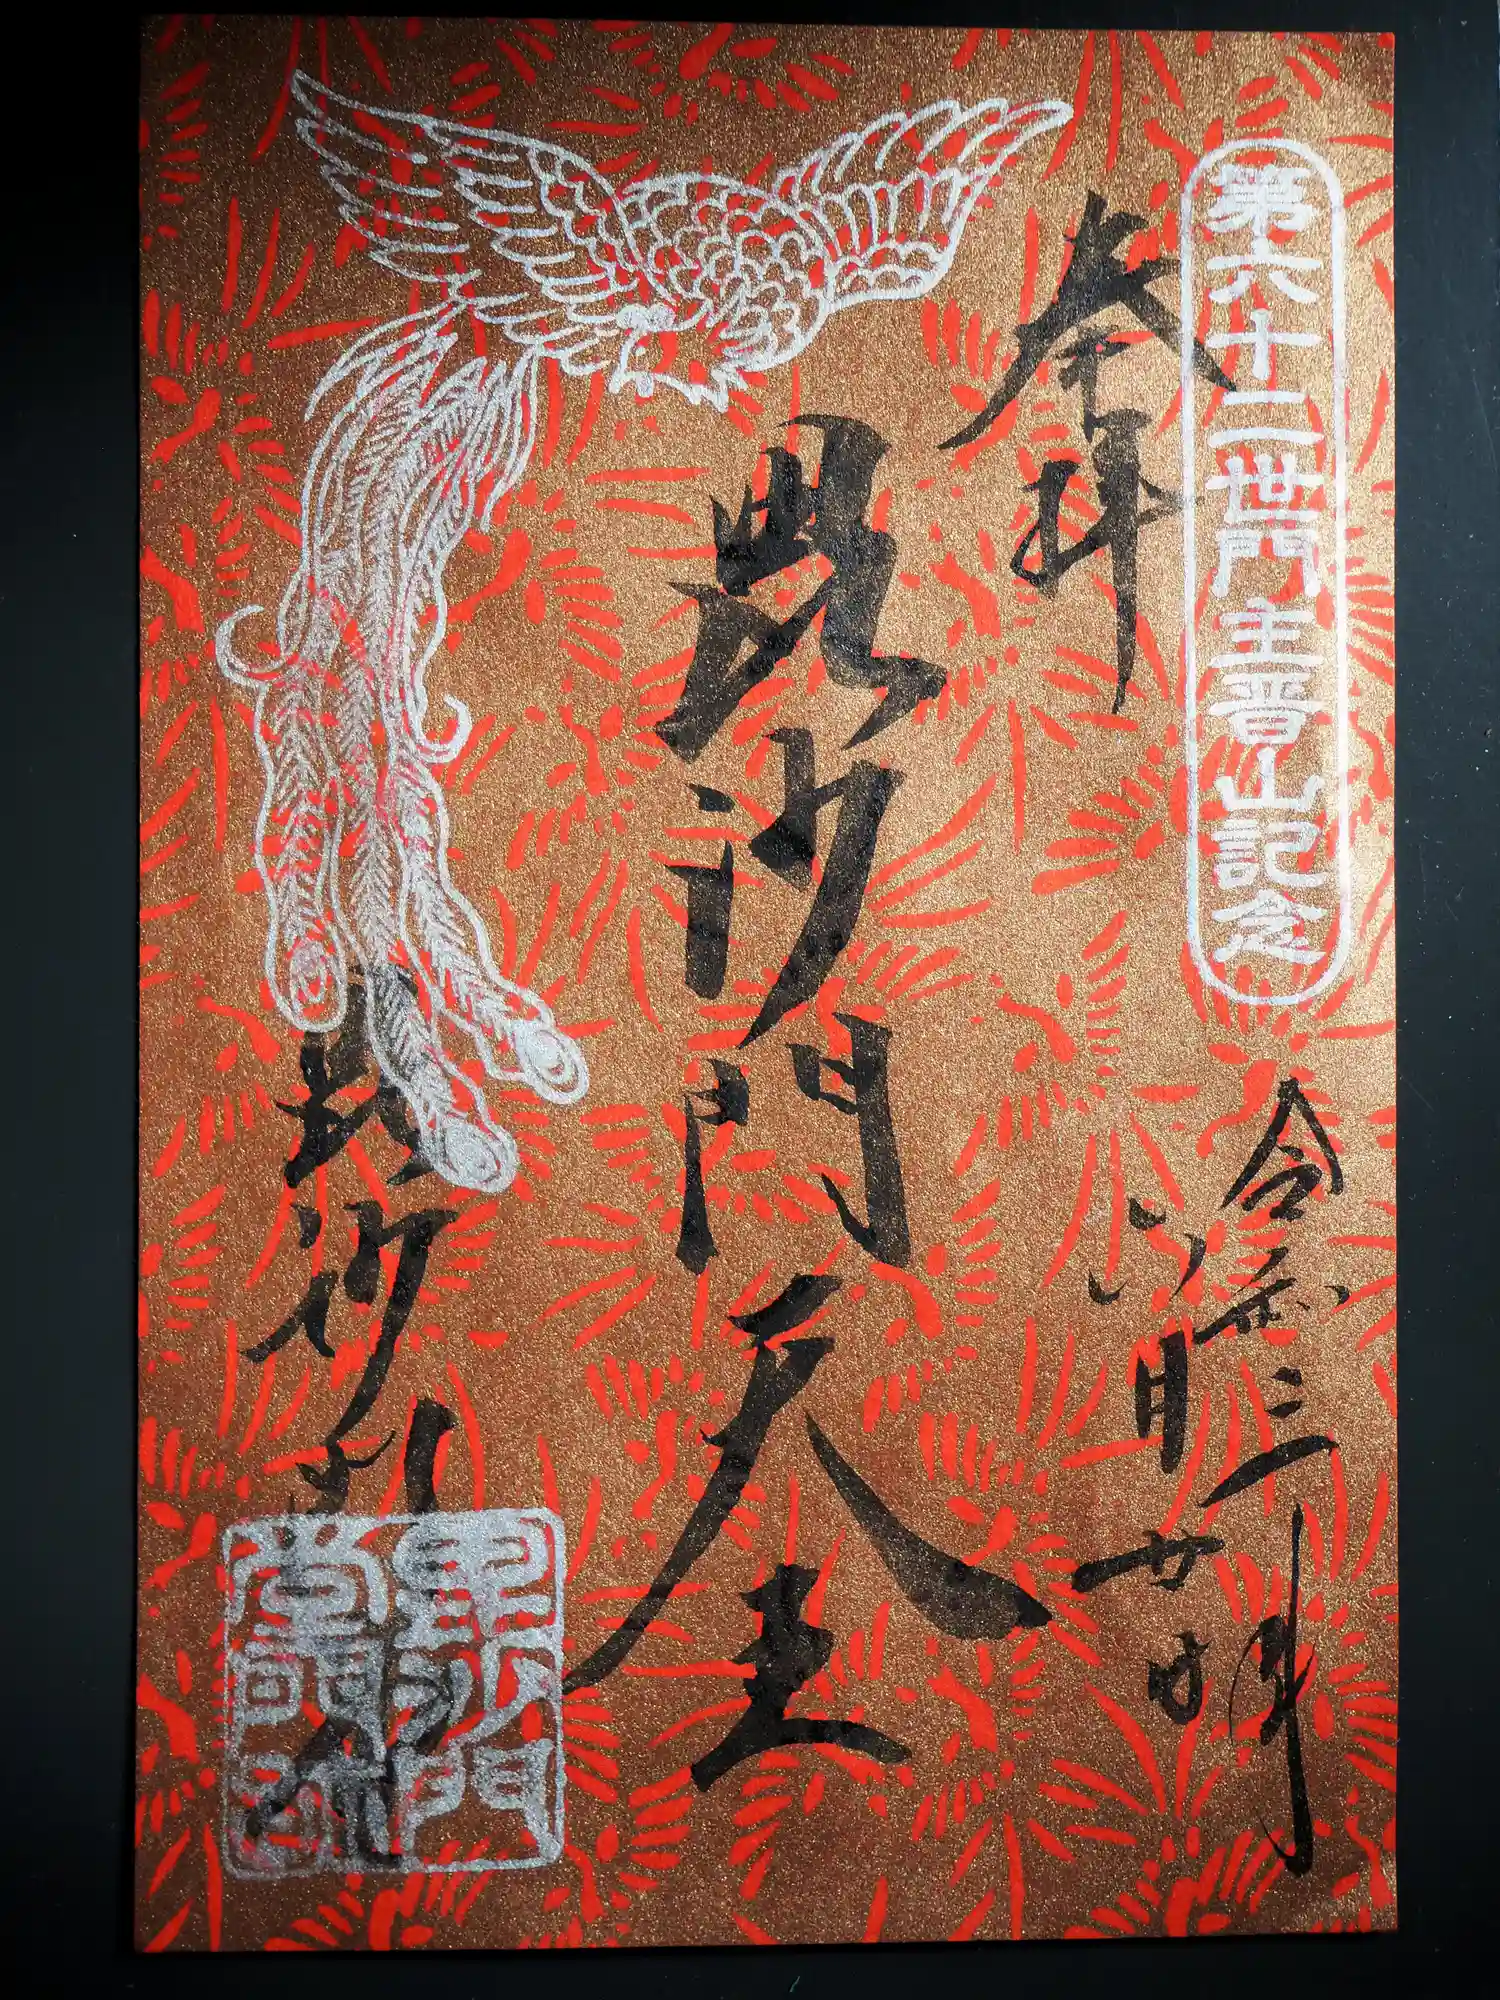 第六十二世門主晋山記念
奉拝
令和三年
月廿日
毘沙門天王
毘沙門
毘沙門
堂門跡